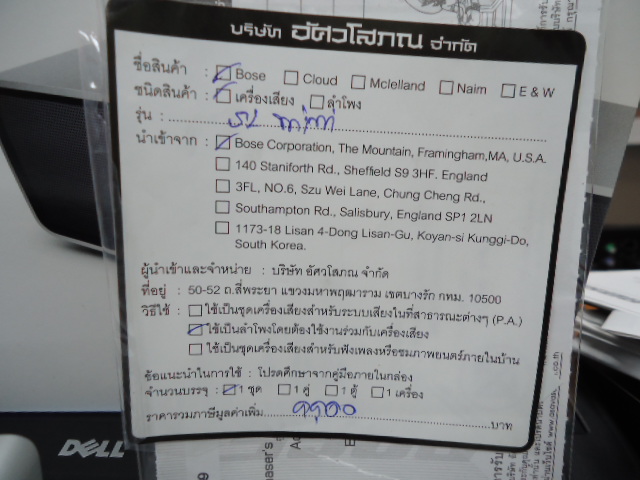 บริษัท อัศวโสภณ จำกัด
ชื่อสินค้า : Bose Cloud Mclelland Naim E & W
ชนิดสินค้า : เครื่องเสียง ลำโพง
รุ่น :
นำเข้าจาก : Bose Corporation, The Mountain, Framingham,MA, U.S.A.
140 Staniforth Rd., Sheffield S9 3HF. England
3FL, NO.6, Szu Wei Lane, Chung Cheng Rd.,
Southampton Rd., Salisbury, England SP1 2LN
1173-18 Lisan 4-Dong Lisan-Gu, Koyan-si Kunggi-Do,
South Korea.
ผู้นำเข้าและจำหน่าย : บริษัท อัศวโสภณ จำกัด
ที่อยู่ : 50-52 ถ.สี่พระยา แขวงมหาพฤฒาราม เขตบางรัก กทม. 10500
วิธีใช้ : ใช้เป็นชุดเครื่องเสียงสำหรับระบบเสียงในที่สาธารณะต่างๆ (P.A.)
ใช้เป็นลำโพงโดยต้องใช้งานร่วมกับเครื่องเสียง
ใช้เป็นชุดเครื่องเสียงสำหรับฟังเพลงหรือชมภาพยนตร์ภายในบ้าน
ข้อแนะนำในการใช้ : โปรดศึกษาจากคู่มือภายในกล่อง
จำนวนบรรจุ : 1 ชุด 1 คู่ 1 ตู้ 1 เครื่อง
ราคารวมภาษีมูลค่าเพิ่ม บาท
DELL